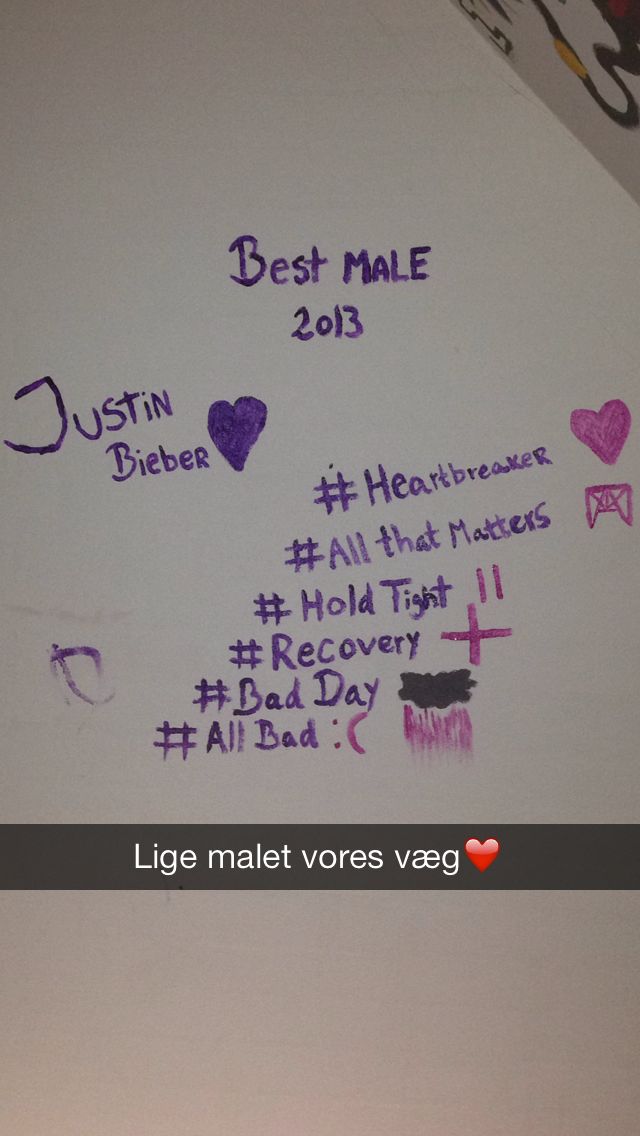 Best MALE
2013
JUSTIN
BieBER
#Heartbreaker
#All that Matters
#Hold Tight
#Recovery
#Bad Day
#All Bad :(
Lige malet vores væg❤️